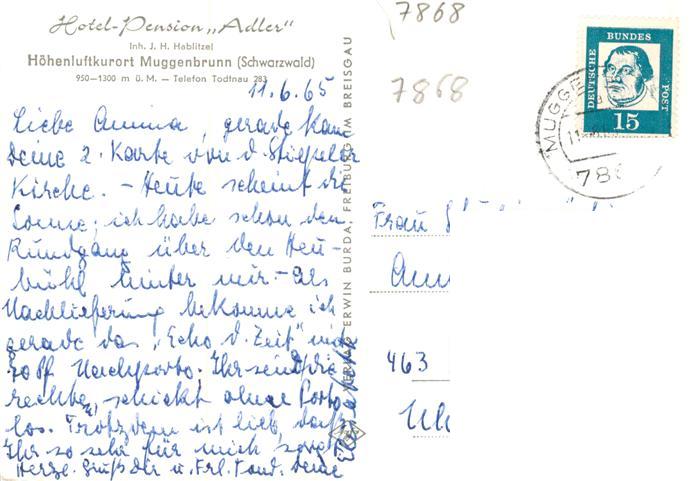 Hotel-Pension „Adler"
Inh. J. H. Hablitzel
Höhenluftkurort Muggenbrunn (Schwarzwald)
950—1300 m ü. M. — Telefon Todtnau 283
11.6.65
Liebe Amina, gerade kam
Deine 2. Karte von d. Stiepeler
Kirche. – Heute scheint die
Sonne; ich habe schon den
Rundgang über den Heu-
bühl hinter mir – als
Nachlieferung bekomme ich
gerade das „Echo d. Zeit" mit
20 Pf Nachporto. Ihr seid die
rechten, schickt ohne Porto
los. Trotzdem ist lieb, daß
Ihr so sehr für mich sorgt
Herzl. Gruß Dir u. Frl. Deine
VERLAG ERWIN BURDA, FREIBURG IM BREISGAU
7868
7868
DEUTSCHE BUNDES POST
15
MUGGE
11
786
Frau
463